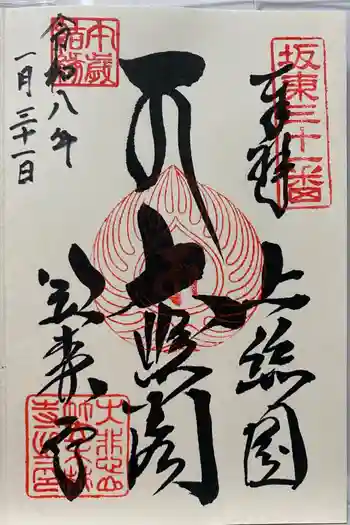 坂東三十一番
奉拝
上総国
大照閣
笠森寺
令和八年
一月三十一日